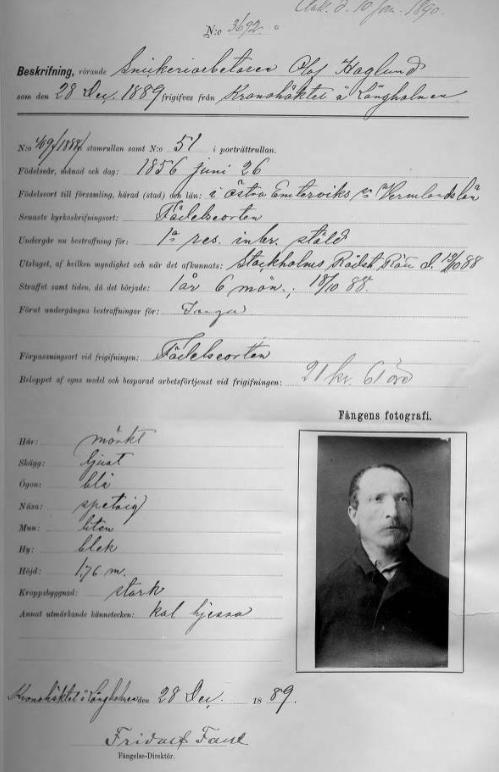 d. 10 Jan. 1890.
N:o 3692.
Beskrifning, rörande Snickeriarbetaren Olof Haglund
som den 28 Dec. 1889 frigifves från Kronohäktet å Långholmen
N:o 49/1888 stamrullan samt N:o 51 i porträttrullan.
Födelseår, månad och dag: 1856 juni 26
Födelseort till församling, härad (stad) och län: i östra Emterviks Vermlands län
Senaste kyrkoskrifningsort: Födelseorten
Undergår nu bestraffning för: 1a res. inbr. stöld
Utslaget, af hvilken myndighet och när det afkunnats: Stockholms Rådst. Rätt d. 18/10 88
Straffet samt tiden, då det började: 1 år 6 mån.; 18/10 88.
Förut undergångna bestraffningar för: Inga
Förpassningsort vid frigifningen: Födelseorten
Beloppet af egna medel och besparad arbetsförtjenst vid frigifningen: 21 kr. 61 öre
Fångens fotografi.
Hår: mörkt
Skägg: ljust
Ögon: blå
Näsa: spetsig
Mun: liten
Hy: blek
Höjd: 1,76 m.
Kroppsbyggnad: stark
Annat utmärkande kännetecken: kal hjessa
Kronohäktet å Långholmen den 28 Dec. 1889.
Fängelse-Direktör.